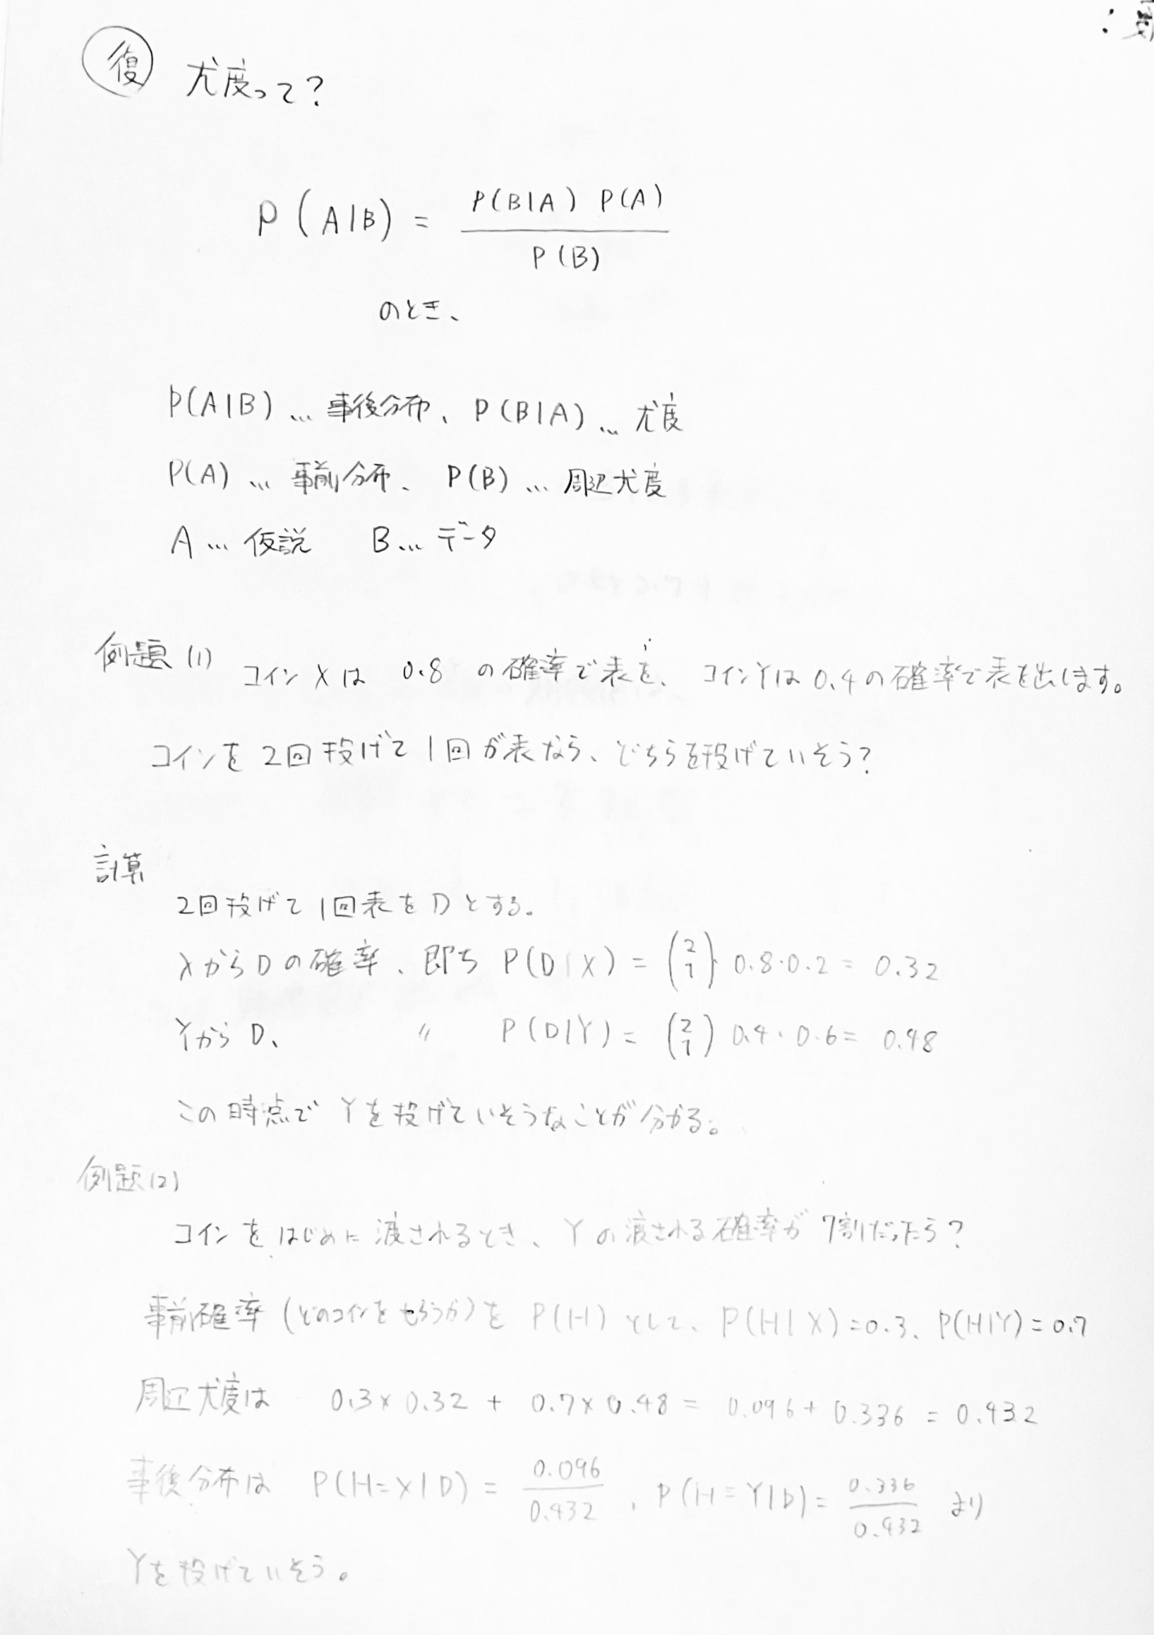 復 尤度って?
P(A|B) = P(B|A) P(A) / P(B)
のとき、
P(A|B) … 事後分布、P(B|A) … 尤度
P(A) … 事前分布、P(B) … 周辺尤度
A … 仮説 B … データ
例題(1) コインXは 0.8 の確率で表を、コインYは0.4の確率で表を出します。
コインを2回投げて1回が表なら、どちらを投げていそう?
計算
2回投げて1回表をDとする。
XからDの確率、即ち P(D|X) = (2 1)・0.8・0.2 = 0.32
YからD、 〃 P(D|Y) = (2 1) 0.4・0.6 = 0.48
この時点でYを投げていそうなことが分かる。
例題(2)
コインをはじめに渡されるとき、Yの渡される確率が7割だったら?
事前確率(どのコインをもらうか)を P(H) として、P(H|X)=0.3、P(H|Y)=0.7
周辺尤度は 0.3×0.32 + 0.7×0.48 = 0.096 + 0.336 = 0.432
事後分布は P(H=X|D) = 0.096 / 0.432 , P(H=Y|D) = 0.336 / 0.432 より
Yを投げていそう。